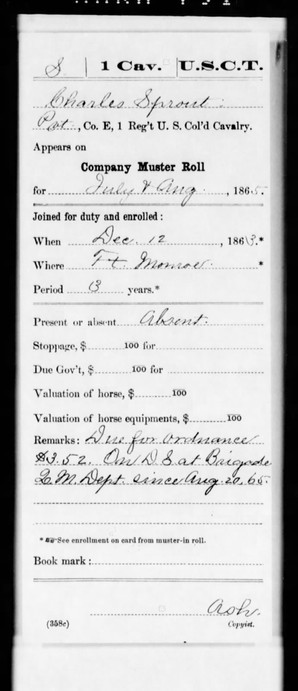 S | 1 Cav. | U.S.C.T.
Charles Sprout
Pvt., Co. E, 1 Reg't U. S. Col'd Cavalry.
Appears on
Company Muster Roll
for July & Aug, 1865.
Joined for duty and enrolled:
When Dec. 12, 1863.*
Where Ft. Monroe *
Period 3 years.*
Present or absent Absent.
Stoppage, $ 100 for
Due Gov't, $ 100 for
Valuation of horse, $ 100
Valuation of horse equipments, $ 100
Remarks: Due for ordnance
$3.52. On D.S. at Brigade
Q.M. Dept. since Aug. 20, 65.
*See enrollment on card from muster-in roll.
Book mark:
(358c) Copyist.